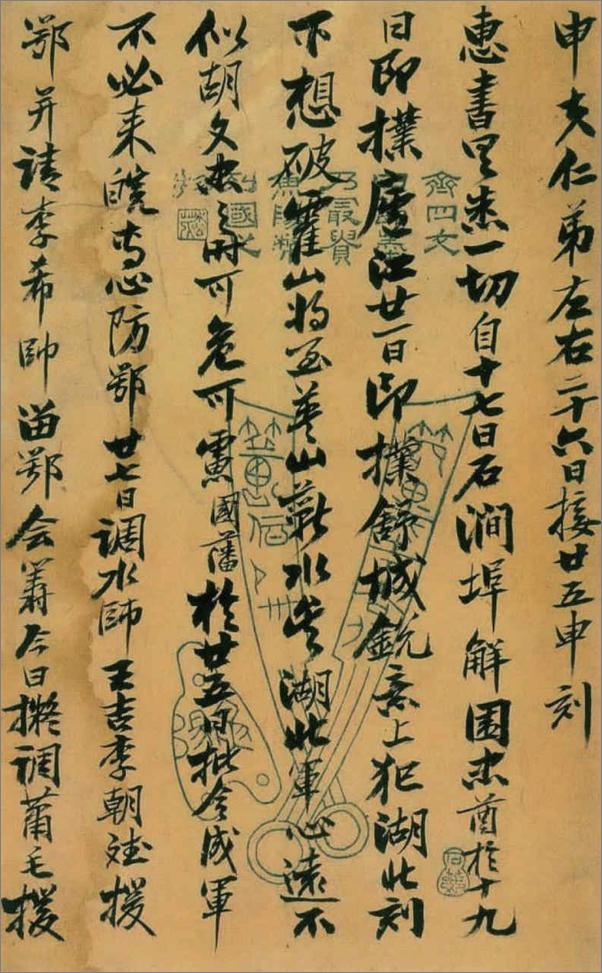 申夫仁弟左右二十六日接廿五申刻
惠書具悉一切自十七日石澗埠解圍忠酋於十九
日即撲廬江廿一日即撲舒城銳意上犯湖北刻
下想破霍山將至英山蘄水矣湖北軍心遠不
似胡文忠之時可危可慮國藩於廿五日批令成軍
不必来皖专心防鄂廿七日調水師王吉李朝斌援
鄂并請李希帥留鄂会籌今日擬調蕭毛援